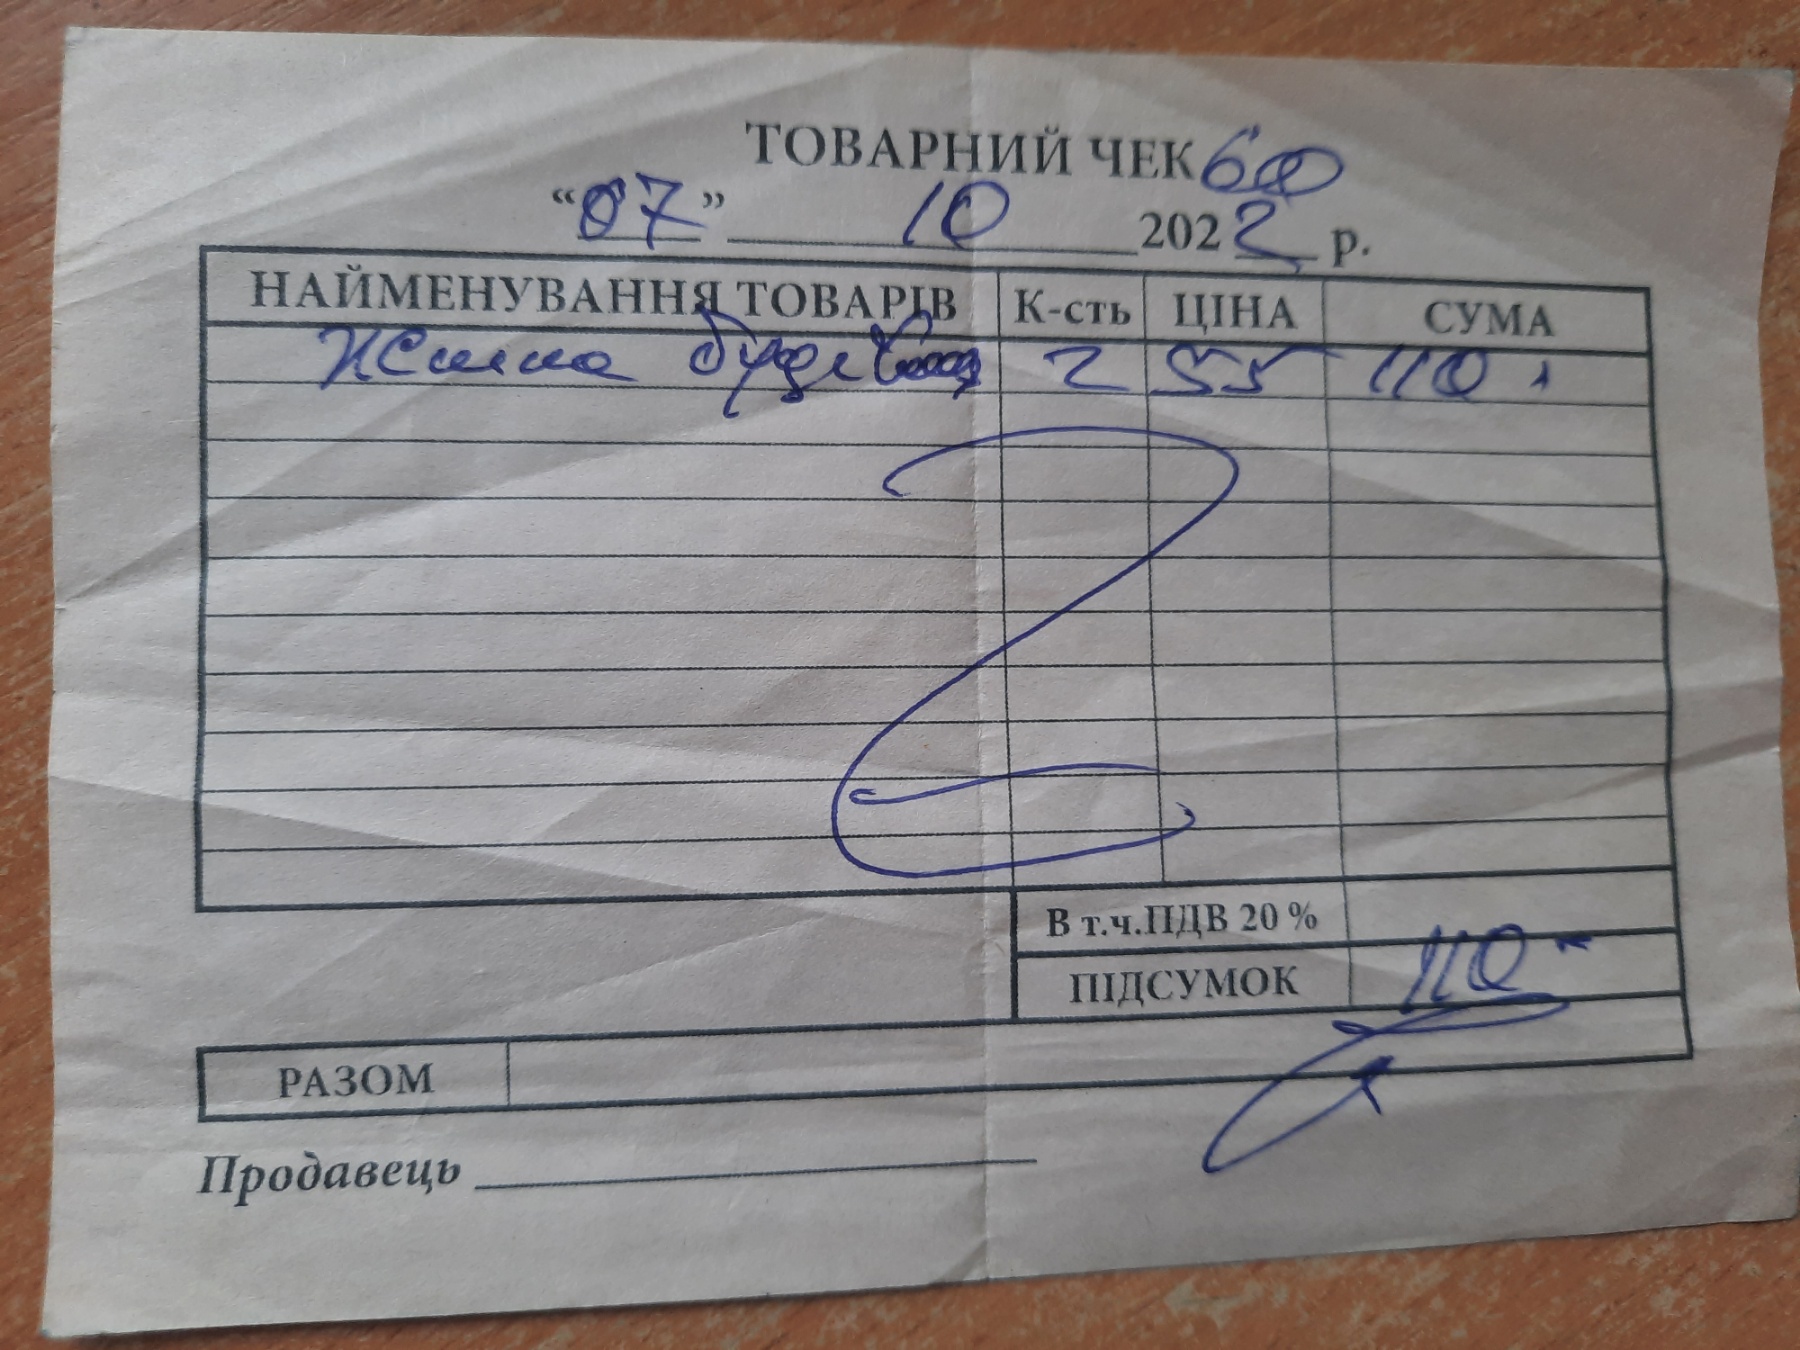 ТОВАРНИЙ ЧЕК 60
"07" 10 2022 р.
НАЙМЕНУВАННЯ ТОВАРІВ К-сть ЦІНА СУМА
2 55 110
В т.ч.ПДВ 20 %
ПІДСУМОК 110
РАЗОМ
Продавець